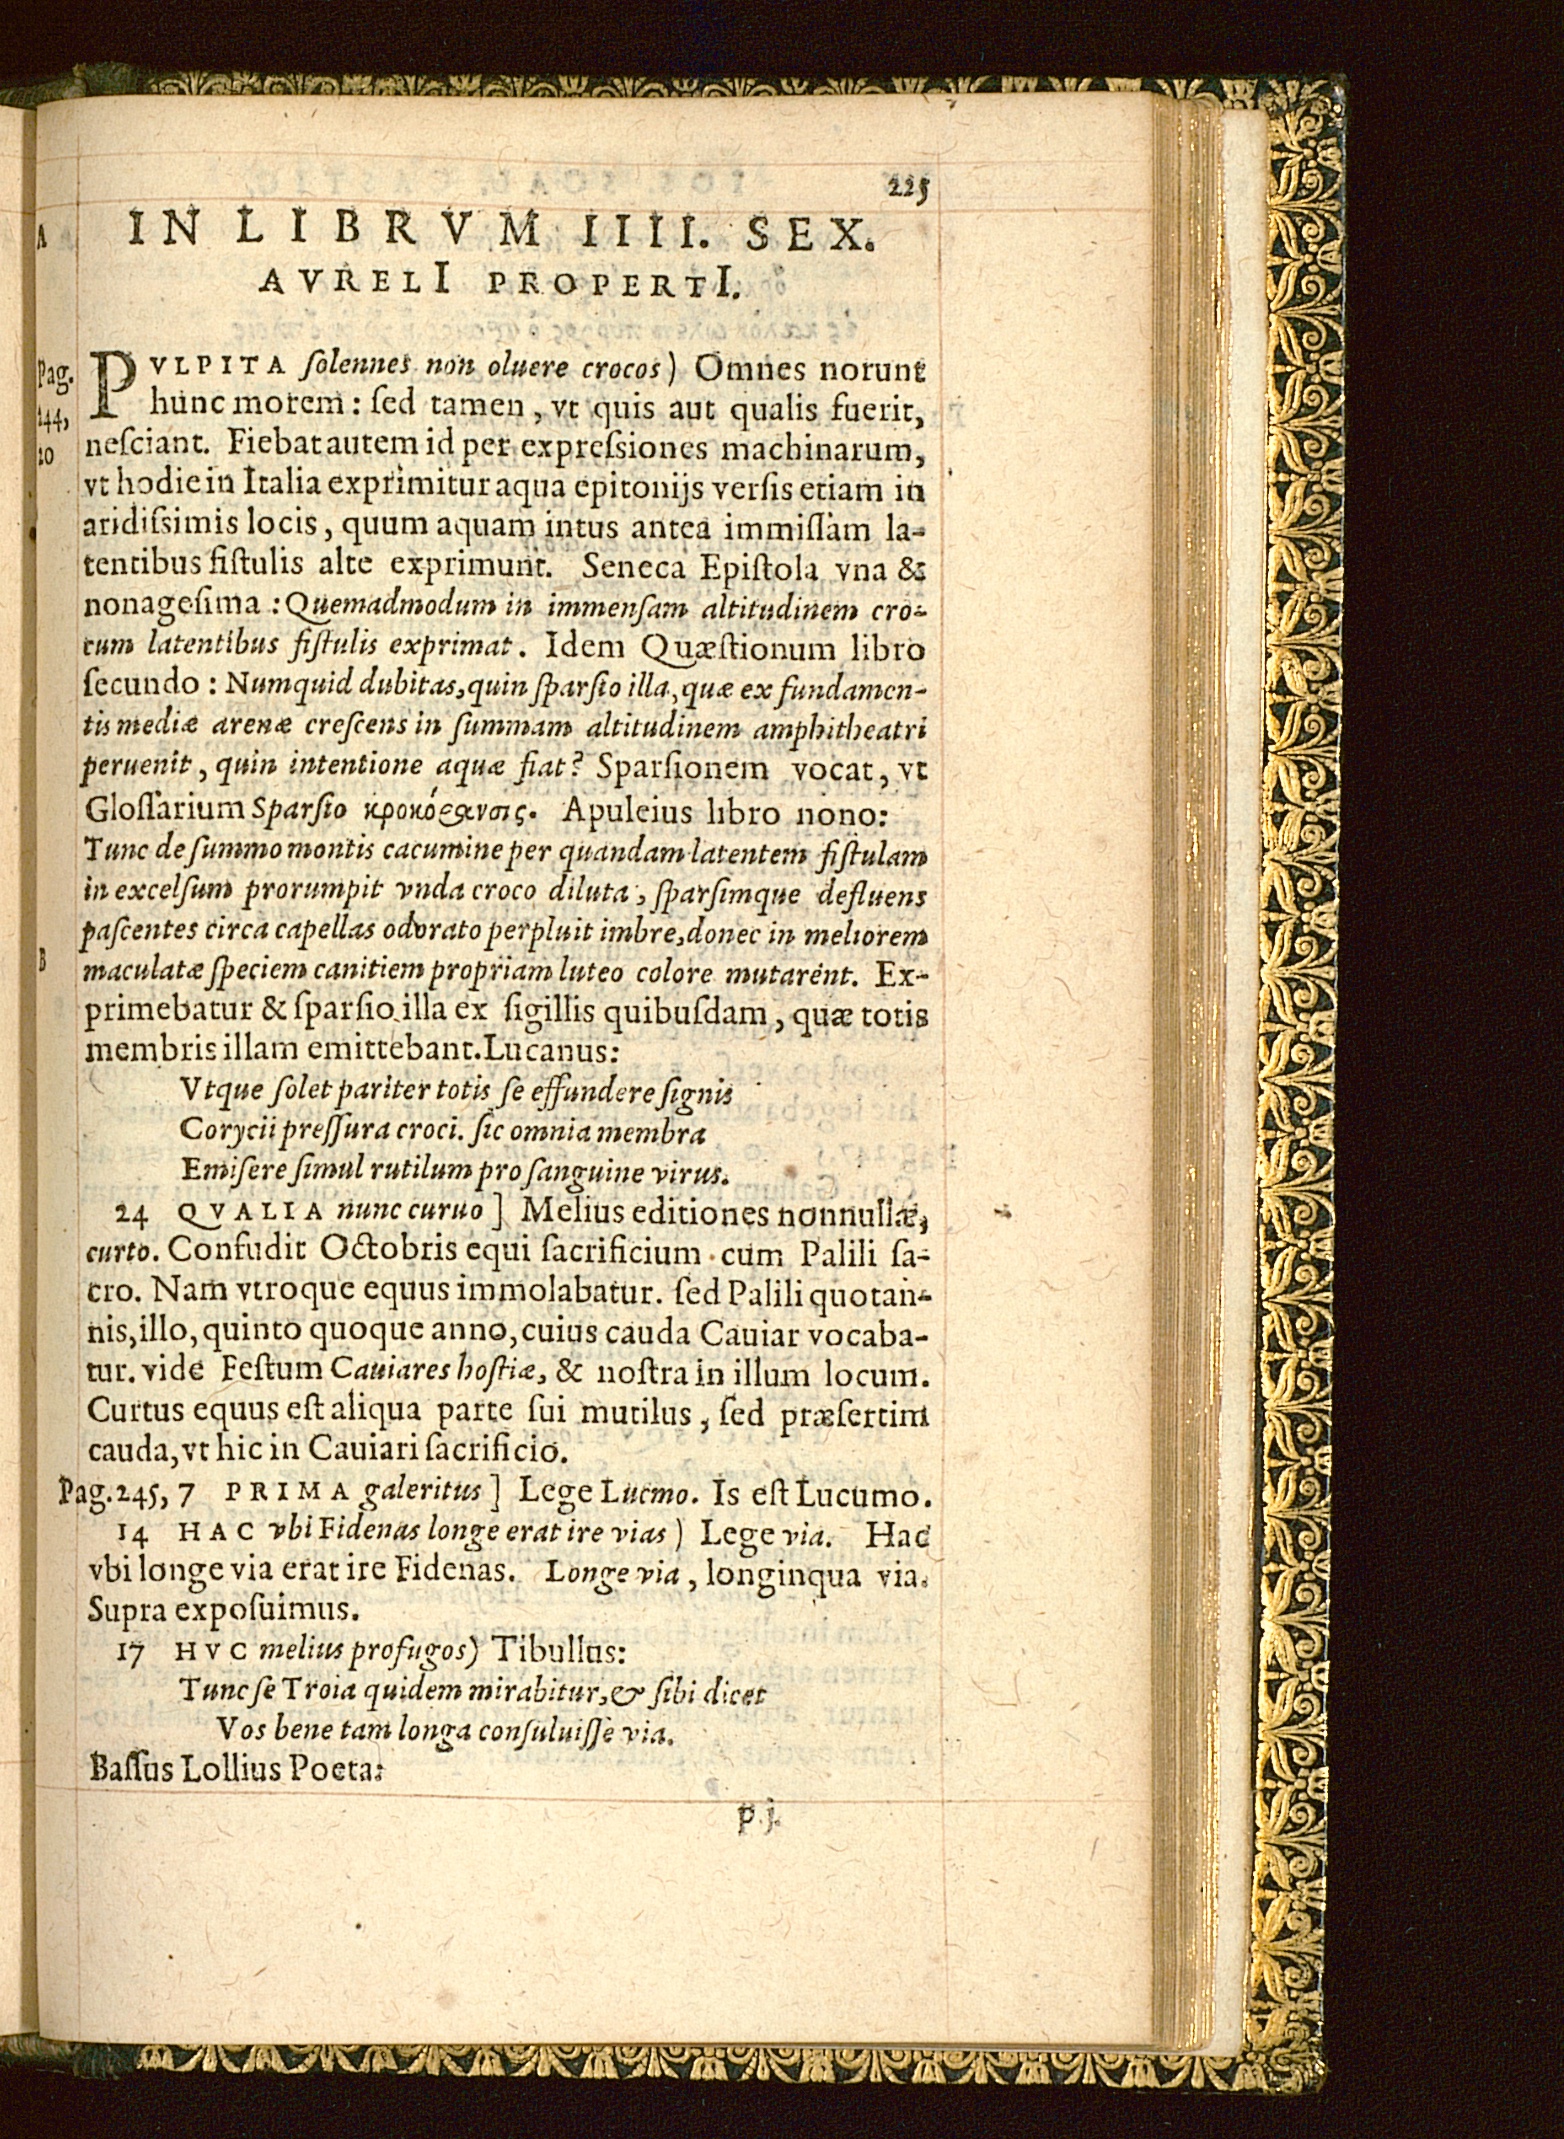 225
A
IN LIBRVM IIII. SEX.
AVRELI PROPERTI.
Pag.
244,
20
PVLPITA ſolennes non oluere crocos) Omnes norunt
hunc morem: ſed tamen, vt quis aut qualis fuerit,
neſciant. Fiebat autem id per expreſsiones machinarum,
vt hodie in Italia exprimitur aqua epitonijs verſis etiam in
aridiſsimis locis, quum aquam intus antea immiſſam la-
tentibus fiſtulis alte exprimunt. Seneca Epiſtola vna &
nonageſima: Quemadmodum in immenſam altitudinem cro-
cum latentibus fiſtulis exprimat. Idem Quæſtionum libro
ſecundo: Numquid dubitas, quin ſparſio illa, quæ ex fundamen-
tis mediæ arenæ creſcens in ſummam altitudinem amphitheatri
peruenit, quin intentione aquæ fiat? Sparſionem vocat, vt
Gloſſarium Sparſio κροκόρανσις. Apuleius libro nono:
Tunc de ſummo montis cacumine per quandam latentem fiſtulam
in excelſum prorumpit vnda croco diluta, ſparſimque defluens
paſcentes circa capellas odorato perpluit imbre, donec in meliorem
B
maculatæ ſpeciem canitiem propriam luteo colore mutarent. Ex-
primebatur & ſparſio illa ex ſigillis quibuſdam, quæ totis
membris illam emittebant. Lucanus:
Vtque ſolet pariter totis ſe effundere ſignis
Corycii preſſura croci. ſic omnia membra
Emiſere ſimul rutilum pro ſanguine virus.
24 QVALIA nunc curuo] Melius editiones nonnullæ,
curto. Confudit Octobris equi ſacrificium cum Palili ſa-
cro. Nam vtroque equus immolabatur. ſed Palili quotan-
nis, illo, quinto quoque anno, cuius cauda Cauiar vocaba-
tur. vide Feſtum Cauiares hoſtiæ, & noſtra in illum locum.
Curtus equus eſt aliqua parte ſui mutilus, ſed præſertim
cauda, vt hic in Cauiari ſacrificio.
Pag. 245, 7 PRIMA galeritus] Lege Lucmo. Is eſt Lucumo.
14 HAC vbi Fidenas longe erat ire vias) Lege via. Hac
vbi longe via erat ire Fidenas. Longe via, longinqua via.
Supra expoſuimus.
17 HVC melius profugos) Tibullus:
Tunc ſe Troia quidem mirabitur, & ſibi dicet
Vos bene tam longa conſuluiſſe via.
Baſſus Lollius Poeta:
p.j.